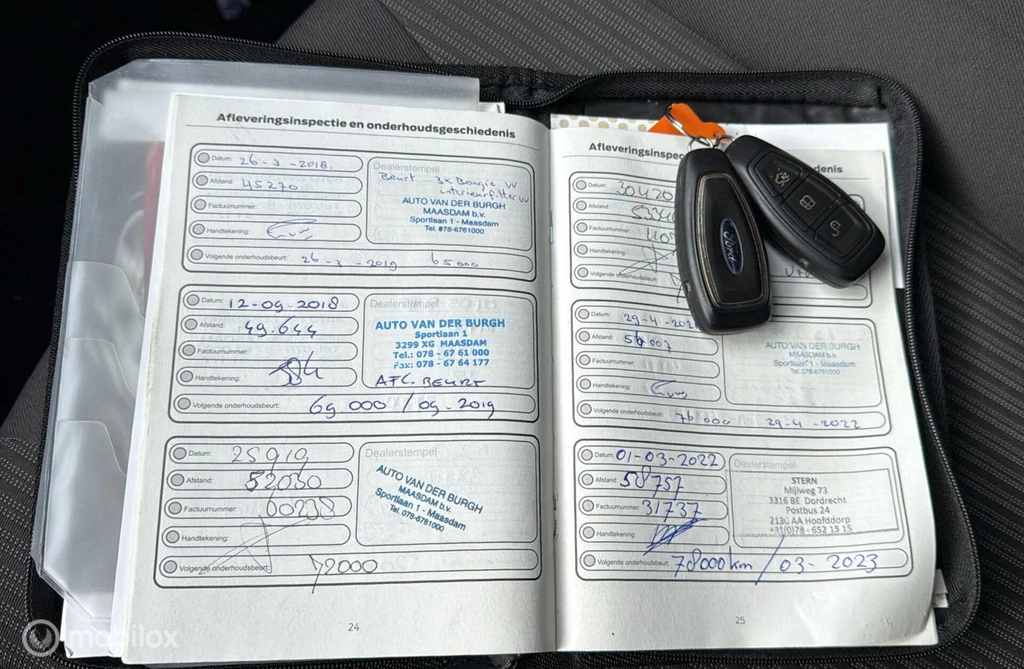 Afleveringsinspectie en onderhoudsgeschiedenis
Datum: 26-3-2018.
Dealerstempel
Beurt 3x Bougie VV
interieurfilter VV
Afstand: 45270
AUTO VAN DER BURGH
MAASDAM b.v.
Sportlaan 1 - Maasdam
Tel. 078-6761000
Factuurnummer:
Handtekening:
Volgende onderhoudsbeurt: 26-3-2019 65000
Datum: 12-09-2018
Dealerstempel
Afstand: 49.644
AUTO VAN DER BURGH
Sportlaan 1
3299 XG MAASDAM
Tel.: 078 - 67 61 000
Fax: 078 - 67 64 177
Factuurnummer:
Handtekening:
APC. BEURT
Volgende onderhoudsbeurt: 69000 / 09-2019
Datum: 25919
Dealerstempel
Afstand: 52030
AUTO VAN DER BURGH
MAASDAM b.v.
Sportlaan 1 - Maasdam
Tel. 078-6761000
Factuurnummer: 60238
Handtekening:
Volgende onderhoudsbeurt: 72000
24
Afleveringsinspec
denis
Datum: 30420
Afstand:
Factuurnummer:
Handtekening:
Volgende onderhoudsbeurt:
Ford
Datum: 29-4-202
Afstand: 56007
AUTO VAN DER BURGH
MAASDAM b.v.
Sportlaan 1 - Maasdam
Tel. 078-6761000
Factuurnummer:
Handtekening:
Volgende onderhoudsbeurt: 76000 29-4-2022
Datum: 01-03-2022
Dealerstempel
Afstand: 58757
STERN
Mijlweg 73
3316 BE Dordrecht
Postbus 24
2130 AA Hoofddorp
+31(0)78 - 652 15 15
Factuurnummer: 31737
Handtekening:
Volgende onderhoudsbeurt: 78000km / 03-2023
25
mobilox